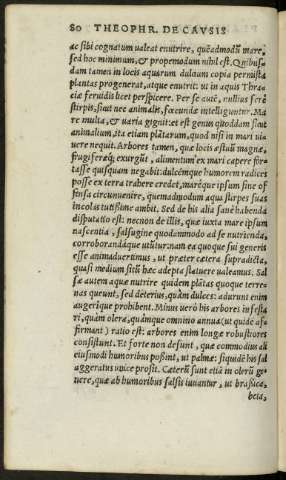 80 THEOPHR. DE CAVSIS
ac sibi cognatum ualeat enutrire, quēadmodū mare,
sed hoc minimum, & propemodum nihil est. Quibus-
dam tamen in locis aquarum dulcium copia permista
plantas progenerat, atque enutrit: ut in aquis Thra-
ciæ feruidis licet perspicere. Per se autē, nullius ferè
stirpis, sicut nec animalis, fœcundæ intelliguntur. Ma
re multa, & uaria gignit: et est genus quoddam sicut
animalium, ita etiam plātarum, quod nisi in mari ui-
uere nequit. Arbores tamen, quæ locis æstuū magnæ,
frugiferæq; exurgūt, alimentum ex mari capere for-
tasse quisquam negabit: dulcēmque humorem radices
posse ex terra trahere credet, maréque ipsum sine of
fensa circunuenire, quemadmodum aquā stirpes suas
incolas tutissime ambit. Sed de his alia sanè habenda
disputatio est: necnon de illis, quæ iuxta mare ipsum
nascentia, salsugine quodammodo ad se nutriendā,
corroborandáque utūtur. nam ea quoque sui generis
esse animaduertimus, ut præter cætera supradicta,
quasi medium sitū hæc adepta statuere ualeamus. Sal
sæ autem aquæ nutrire quidem plātas quoque terre-
nas queunt, sed deterius, quàm dulces: adurunt enim
augeríque prohibent. Minus uerò his arbores infesta
ri, quàm olera, quámque omnino annua (ut quidē af-
firmant) ratio est: arbores enim longæ robustiores
consistunt. Et forte non desunt, quæ commodius ali
eiusmodi humoribus possint, ut palmæ: siquidē his sal
aggeratus uuice prosit. Cæterū sunt etiā in olerū ge-
nere, quæ ab humoribus salsis iuuantur, ut brassica,
beta,